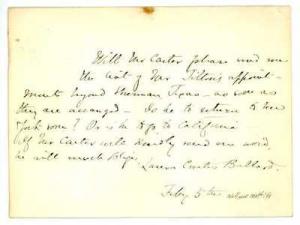 Will Mr Carter please send me
the list of Mr Tilton's appoint-
ments beyond Sherman, Texas - as soon as
they are arranged - Is he to return to New
York soon? Or is he to go to California
If Mr Carter will kindly send me word,
he will much oblige,
Laura Curtis Bullard.
Feby 5th